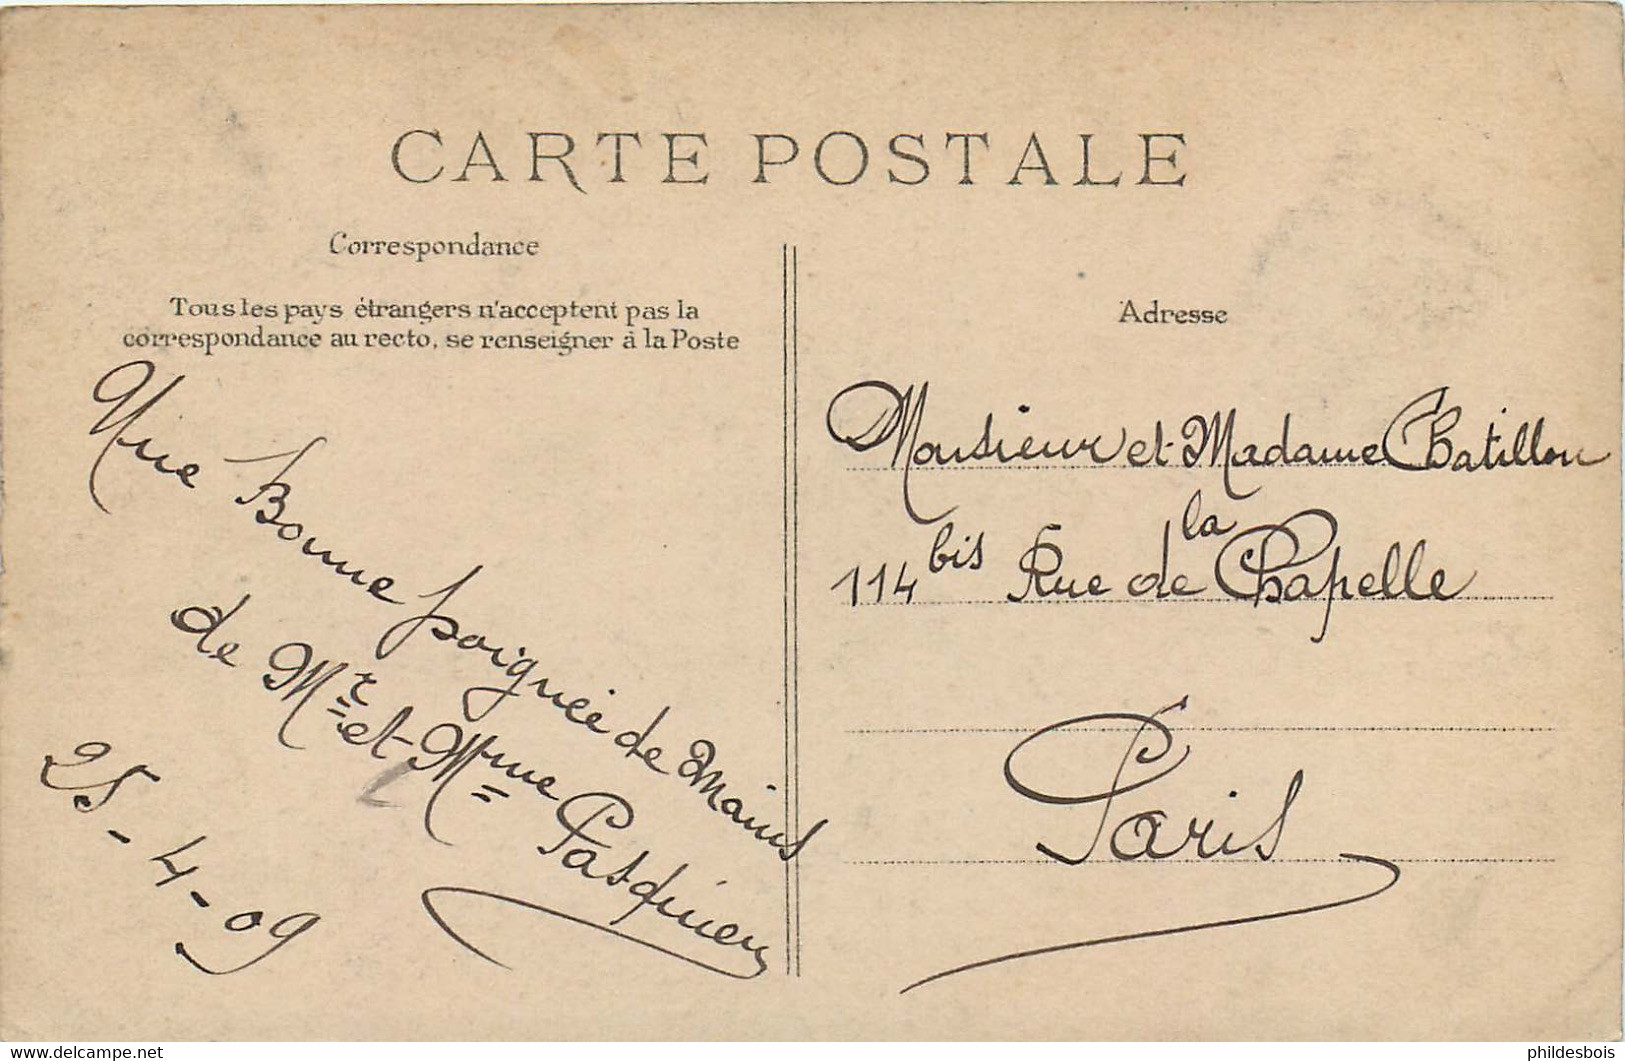 CARTE POSTALE
Correspondance
Tous les pays étrangers n'acceptent pas la
correspondance au recto, se renseigner à la Poste
Une Bonne poignée de mains
de Mr et Mme Pasquien
25-4-09
Adresse
Monsieur et Madame Chatillon
114 bis Rue de la Chapelle
Paris
www.delcampe.net
phildesbois